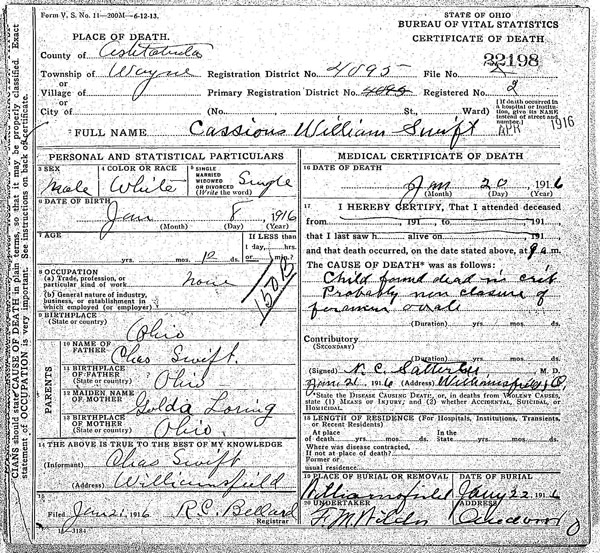 Form V. S. No. 11—200M—6-12-13.
STATE OF OHIO
BUREAU OF VITAL STATISTICS
CERTIFICATE OF DEATH
PLACE OF DEATH.
County of Ashtabula
Township of Wayne Registration District No. 4095 File No. 22198
or
Village of Primary Registration District No. 4095 Registered No. 2
or
City of (No. St., Ward)
[If death occurred in a hospital or institution, give its NAME instead of street and number.]
APR 1916
2 FULL NAME Cassious William Swift
PERSONAL AND STATISTICAL PARTICULARS
3 SEX
Male
4 COLOR OR RACE
White
5 SINGLE
MARRIED
WIDOWED
OR DIVORCED
(Write the word)
Single
6 DATE OF BIRTH
Jan 8, 1916
(Month) (Day) (Year)
7 AGE
yrs. mos. 12 ds.
If LESS than
1 day, hrs.
or min.?
8 OCCUPATION
(a) Trade, profession, or
particular kind of work none
(b) General nature of industry,
business, or establishment in
which employed (or employer)
150B
9 BIRTHPLACE
(State or country)
Ohio
PARENTS
10 NAME OF
FATHER
Chas Swift.
11 BIRTHPLACE
OF FATHER
(State or country)
Ohio
12 MAIDEN NAME
OF MOTHER
Golda Loring
13 BIRTHPLACE
OF MOTHER
(State or country)
Ohio
14 THE ABOVE IS TRUE TO THE BEST OF MY KNOWLEDGE
(Informant) Chas Swift
(Address) Williamsfield
15
Filed Jan 21, 1916 R.C. Bellard
Registrar
11-3184
MEDICAL CERTIFICATE OF DEATH
16 DATE OF DEATH
Jan 20, 1916
(Month) (Day) (Year)
17 I HEREBY CERTIFY, That I attended deceased
from , 191 , to , 191
that I last saw h alive on , 191
and that death occurred, on the date stated above, at 9 a m.
The CAUSE OF DEATH* was as follows:
Child found dead in crib
Probably non closure of
foramen ovale
(Duration) yrs. mos. ds.
Contributory
(SECONDARY)
(Duration) yrs. mos. ds.
(Signed) N. C. M. D.
Jan 21, 1916 (Address) Williamsfield O.
*State the DISEASE CAUSING DEATH, or, in deaths from VIOLENT CAUSES, state (1) MEANS OF INJURY; and (2) whether ACCIDENTAL, SUICIDAL, or HOMICIDAL.
18 LENGTH OF RESIDENCE (For Hospitals, Institutions, Transients, or Recent Residents)
At place In the
of death yrs. mos. ds. State yrs. mos. ds.
Where was disease contracted,
if not at place of death?
Former or
usual residence
19 PLACE OF BURIAL OR REMOVAL
Williamsfield
DATE OF BURIAL
Jany 22, 1916
20 UNDERTAKER
F.M.
ADDRESS
CIANS should state CAUSE OF DEATH in plain terms, so that it may be properly classified. Exact
statement of OCCUPATION is very important. See instructions on back of certificate.